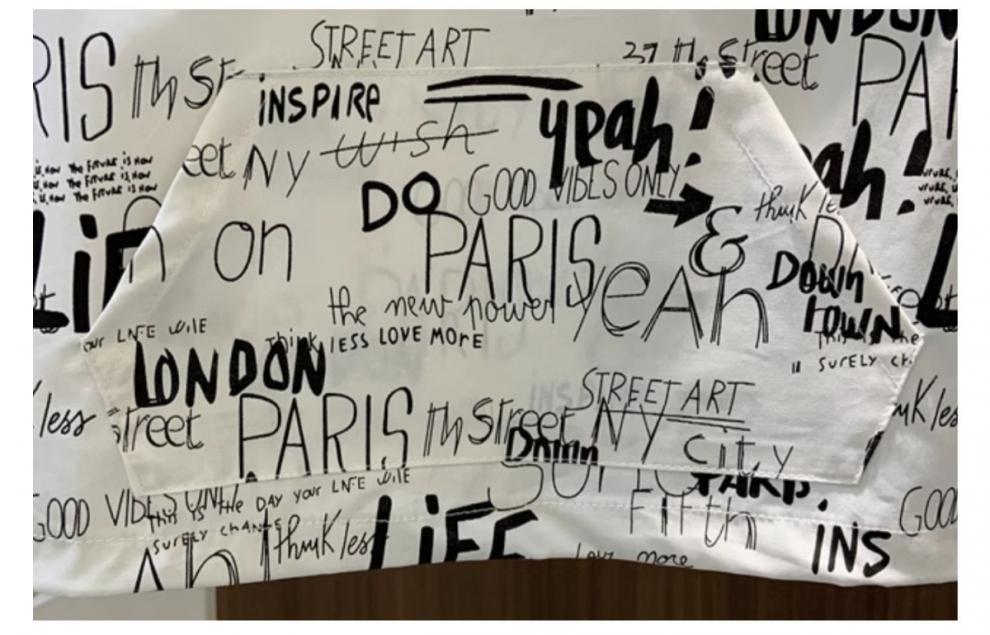 LONDON
STREET ART
27 th Street
RIS th St
PA
INSPIRE
yeah!
eet NY wish
ah!
The Future is Now
The Future is Now
The Future is Now
DO GOOD VIBES ONLY
think le
LiF
on
PARIS
&
yeAh
Down
TOWN
the new power
our LIFE WilE
Think lESS LOVE MORE
SURELY CH
LONDON
STREET ART
less
treet PARIS th Street NY
City
nK les
Down
GOOD VIBES ONL
THE DAY your LIFE WilE
This is
SURELY CHANGE
Fifth
GOOD
think less
LiFE
INS
Love more